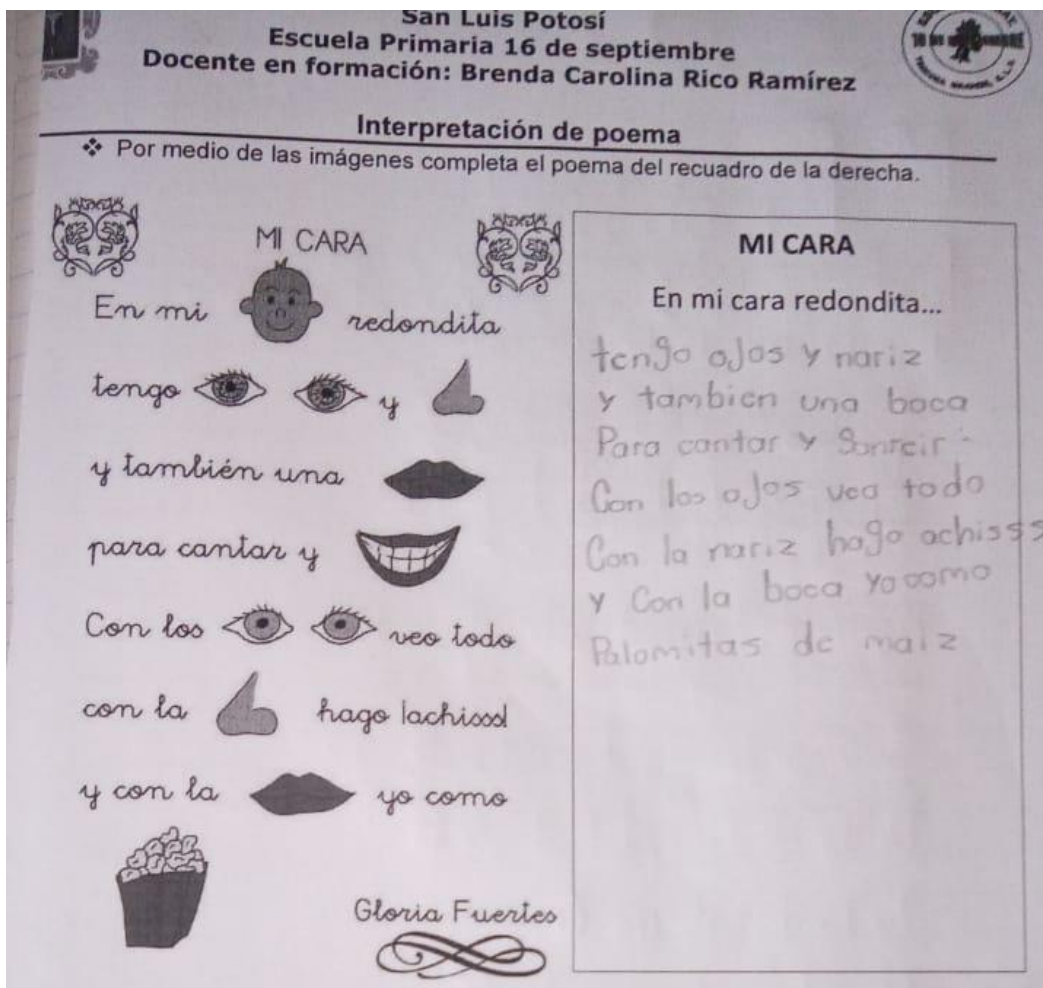 San Luis Potosí
Escuela Primaria 16 de septiembre
Docente en formación: Brenda Carolina Rico Ramírez
Interpretación de poema
❖ Por medio de las imágenes completa el poema del recuadro de la derecha.
MI CARA
En mi redondita
tengo y
y también una
para cantar y
Con los veo todo
con la hago ¡achisss!
y con la yo como
Gloria Fuertes
MI CARA
En mi cara redondita...
tengo ojos y nariz
y tambien una boca
Para cantar y Sonreir
Con los ojos veo todo
Con la nariz hago achisss
y Con la boca Yo como
Palomitas de maiz